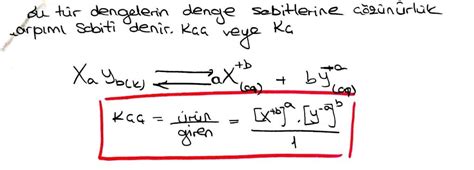 Bu tür dengelerin denge sabitlerine çözünürlük
çarpımı sabiti denir. Kçç veye Kç
XaYb(k) ⇌ aX⁺ᵇ(aq) + bY⁻ᵃ(aq)
Kçç = ürün / giren = [X⁺ᵇ]ᵃ . [Y⁻ᵃ]ᵇ / 1